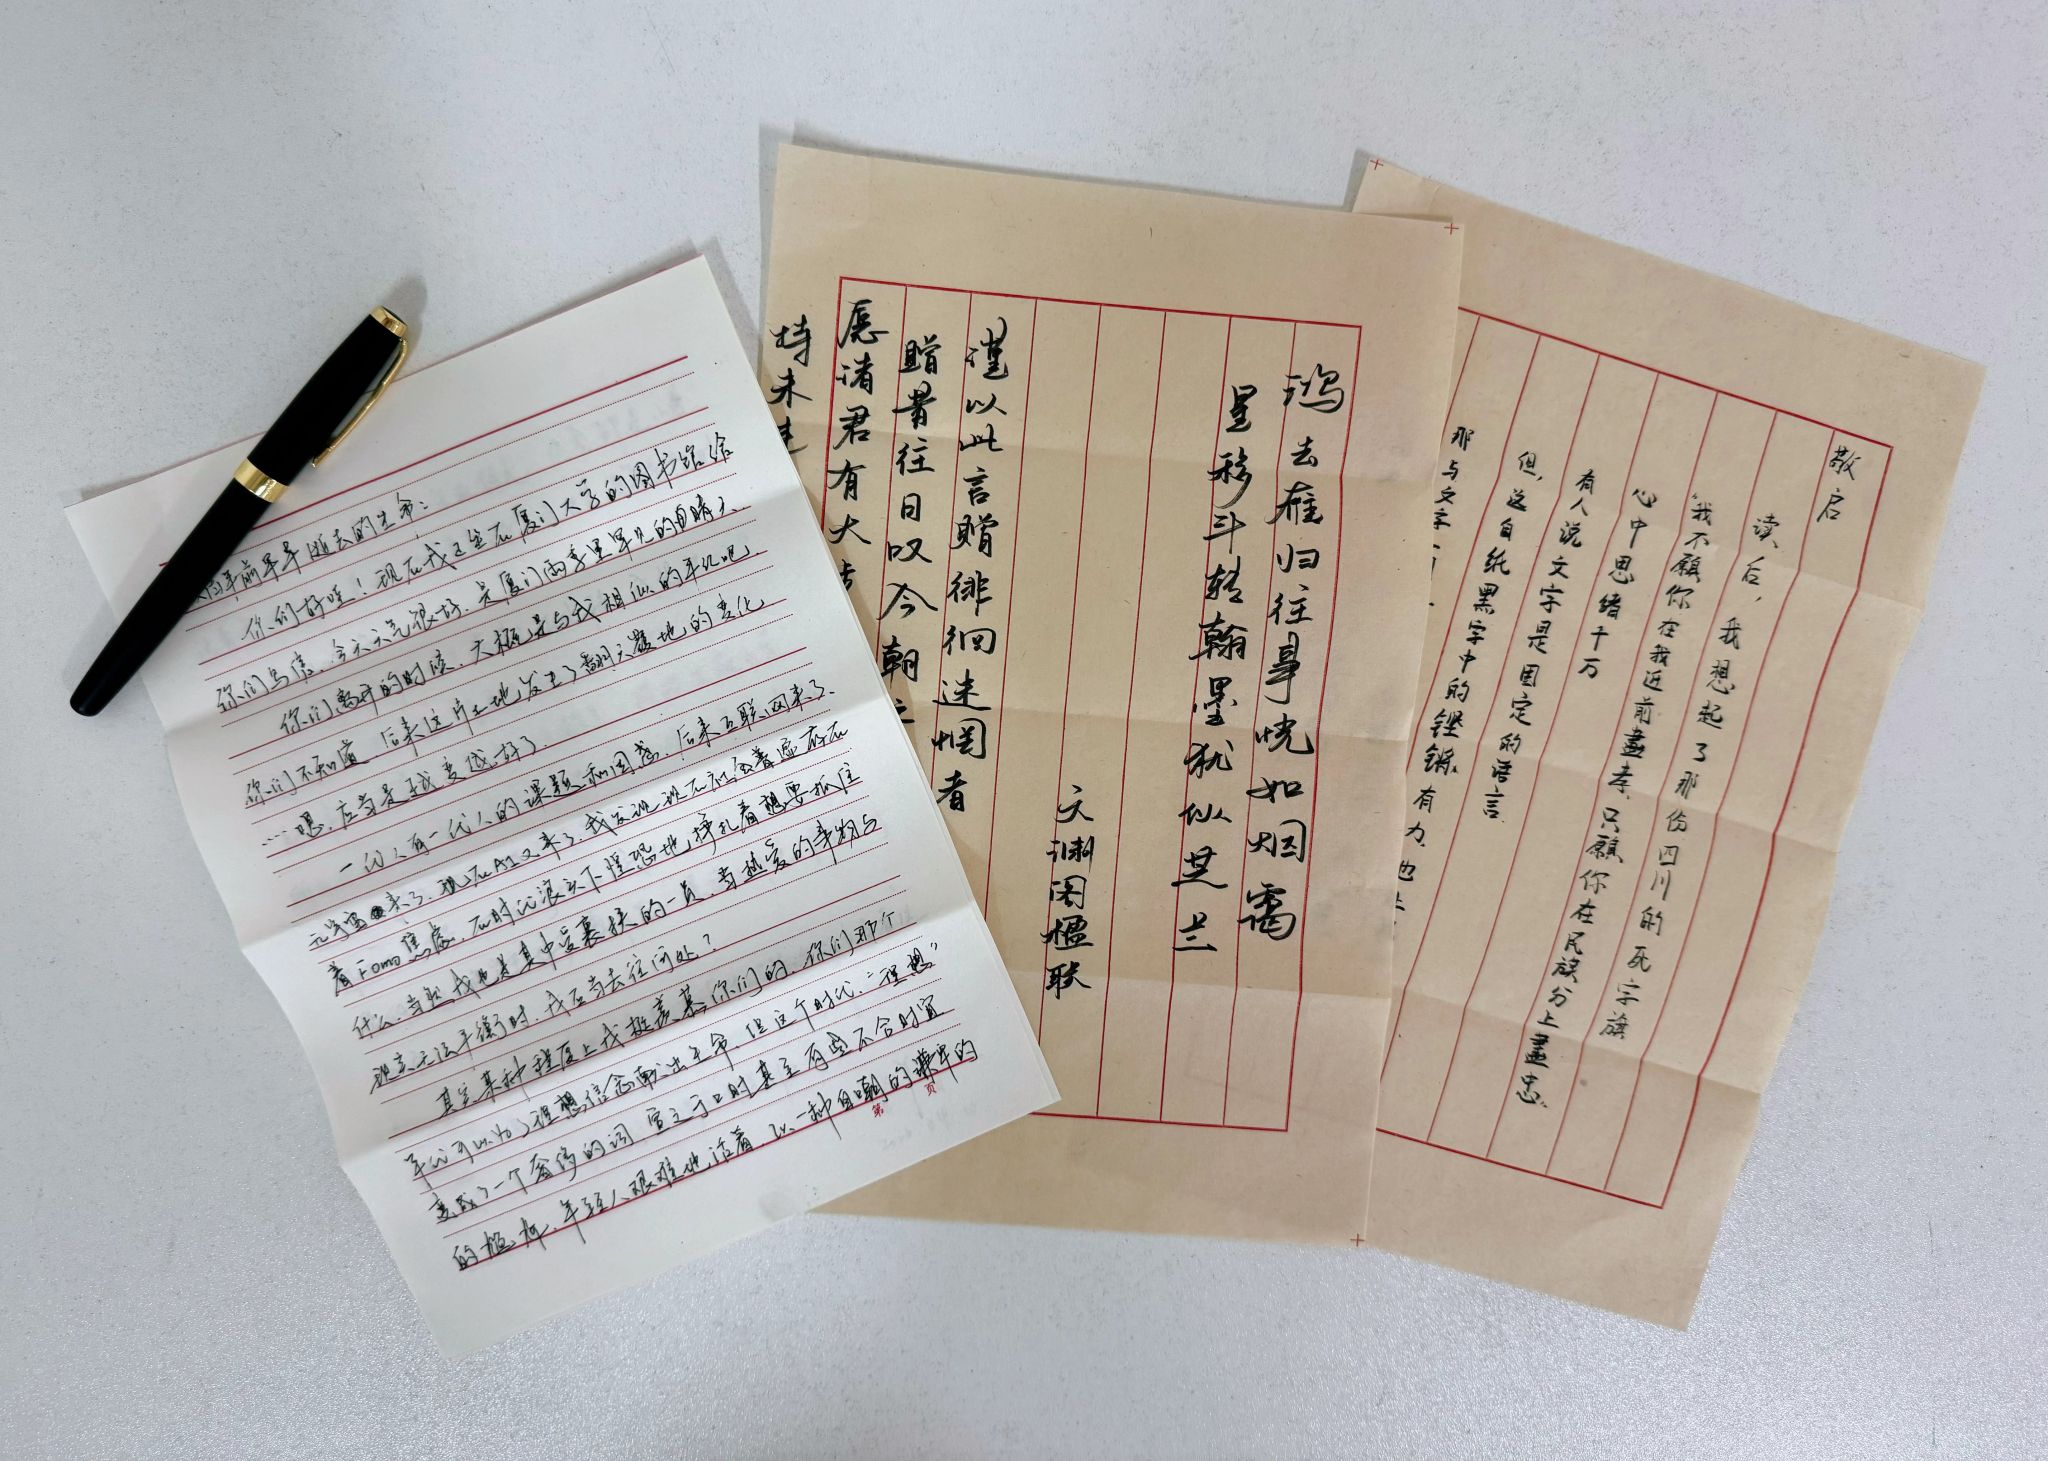 年前早早逝去的生命：
你们好哇！现在我正坐在厦门大学的图书馆给
你们写信，今天天气很好，是厦门雨季里罕见的晴天。
你们离开的时候，大概是与我相似的年纪吧，
你们不知道，后来这片土地发生了翻天覆地的变化
…嗯，应当是越变越好了。
一代人有一代人的课题和困惑，后来互联网来了，
元宇宙来了，现在AI又来了，我发现现在社会着
着Fomo焦虑，在时代浪尖下惶恐地，挣扎着想要抓住
什么，当然我也是其中受裹挟的一员，当热爱的事物与
现实无法平衡时，我应当去往何处？
其实某种程度上我挺羡慕你们的，你们那个
年代可以为了理想信念献出生命，但这个时代，“理想”
变成了一个奢侈的词，宣之于口时甚至有些不合时宜
的尴尬，年轻人艰难地活着，以一种自嘲的谦卑的
第 页
鸿去雁归往事恍如烟霭
星移斗转翰墨犹似芝兰
文渊阁楹联
谨以此言赠徘徊迷惘者
赠昔往日叹今朝
愿诸君有大
持未
敬启
读后，我想起了那份四川的死字旗
“我不愿你在我近前盡孝，只愿你在民族分上盡忠。
心中思绪千万
有人说文字是固定的语言
但，这白纸黑字中的铿锵有力，也
那与文字